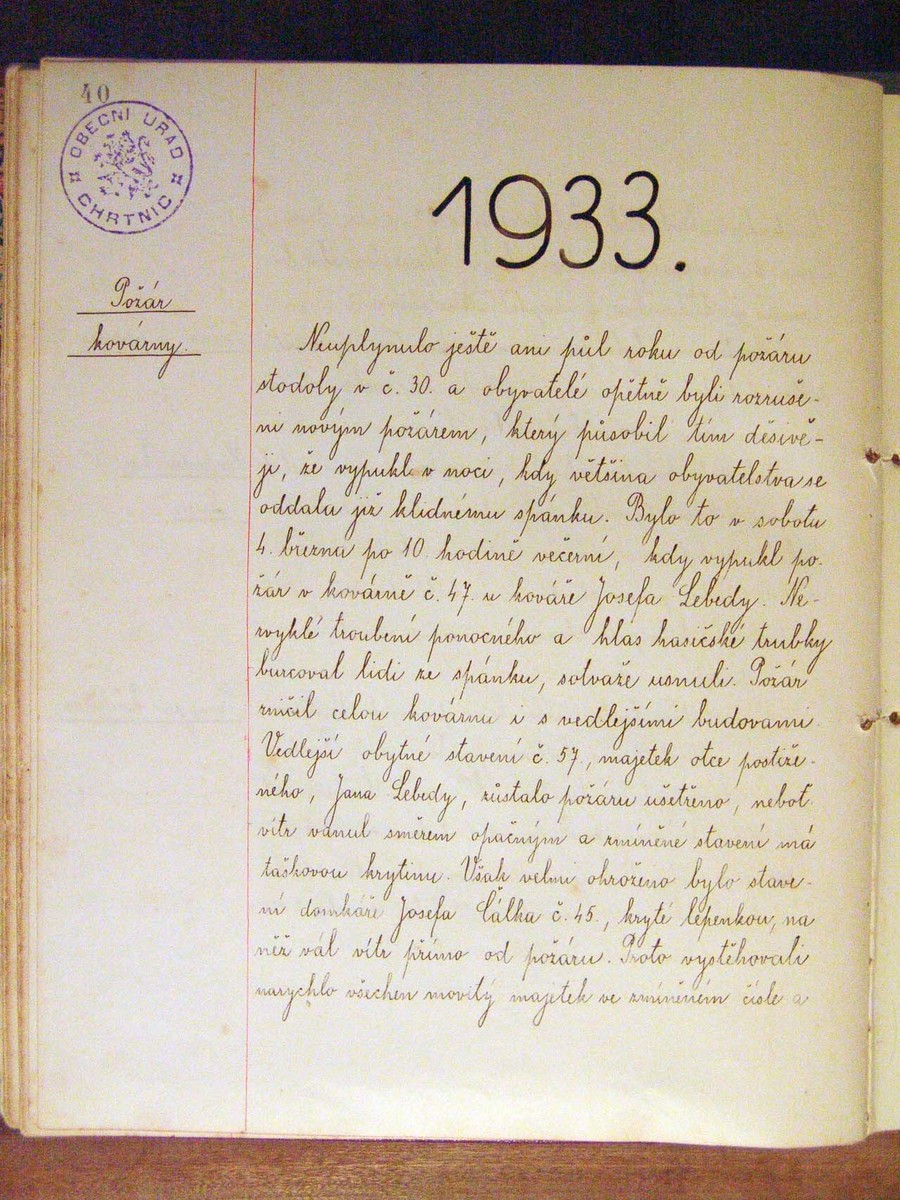 40
OBECNÍ ÚŘAD
CHRTNIC
1933.
Požár
kovárny.
Neuplynulo ještě ani půl roku od požáru
stodoly v č. 30. a obyvatelé opětně byli rozruše-
ni novým požárem, který působil tím děsivě-
ji, že vypukl v noci, kdy většina obyvatelstva se
oddala již klidnému spánku. Bylo to v sobotu
4. března po 10. hodině večerní, kdy vypukl po-
žár v kovárně č. 47. u kováře Josefa Lebedy. Ne-
zvyklé troubení ponocného a hlas hasičské trubky
burcoval lidi ze spánku, sotvaže usnuli. Požár
zničil celou kovárnu i s vedlejšími budovami.
Vedlejší obytné stavení č. 57., majetek otce postiže-
ného, Jana Lebedy, zůstalo požáru ušetřeno, neboť
vítr vanul směrem opačným a zmíněné stavení má
taškovou krytinu. Však velmi ohroženo bylo stave-
ní domkáře Josefa Cálka č. 45., kryté lepenkou, na
něž vál vítr přímo od požáru. Proto vystěhovali
narychlo všechen movitý majetek ve zmíněném čísle a